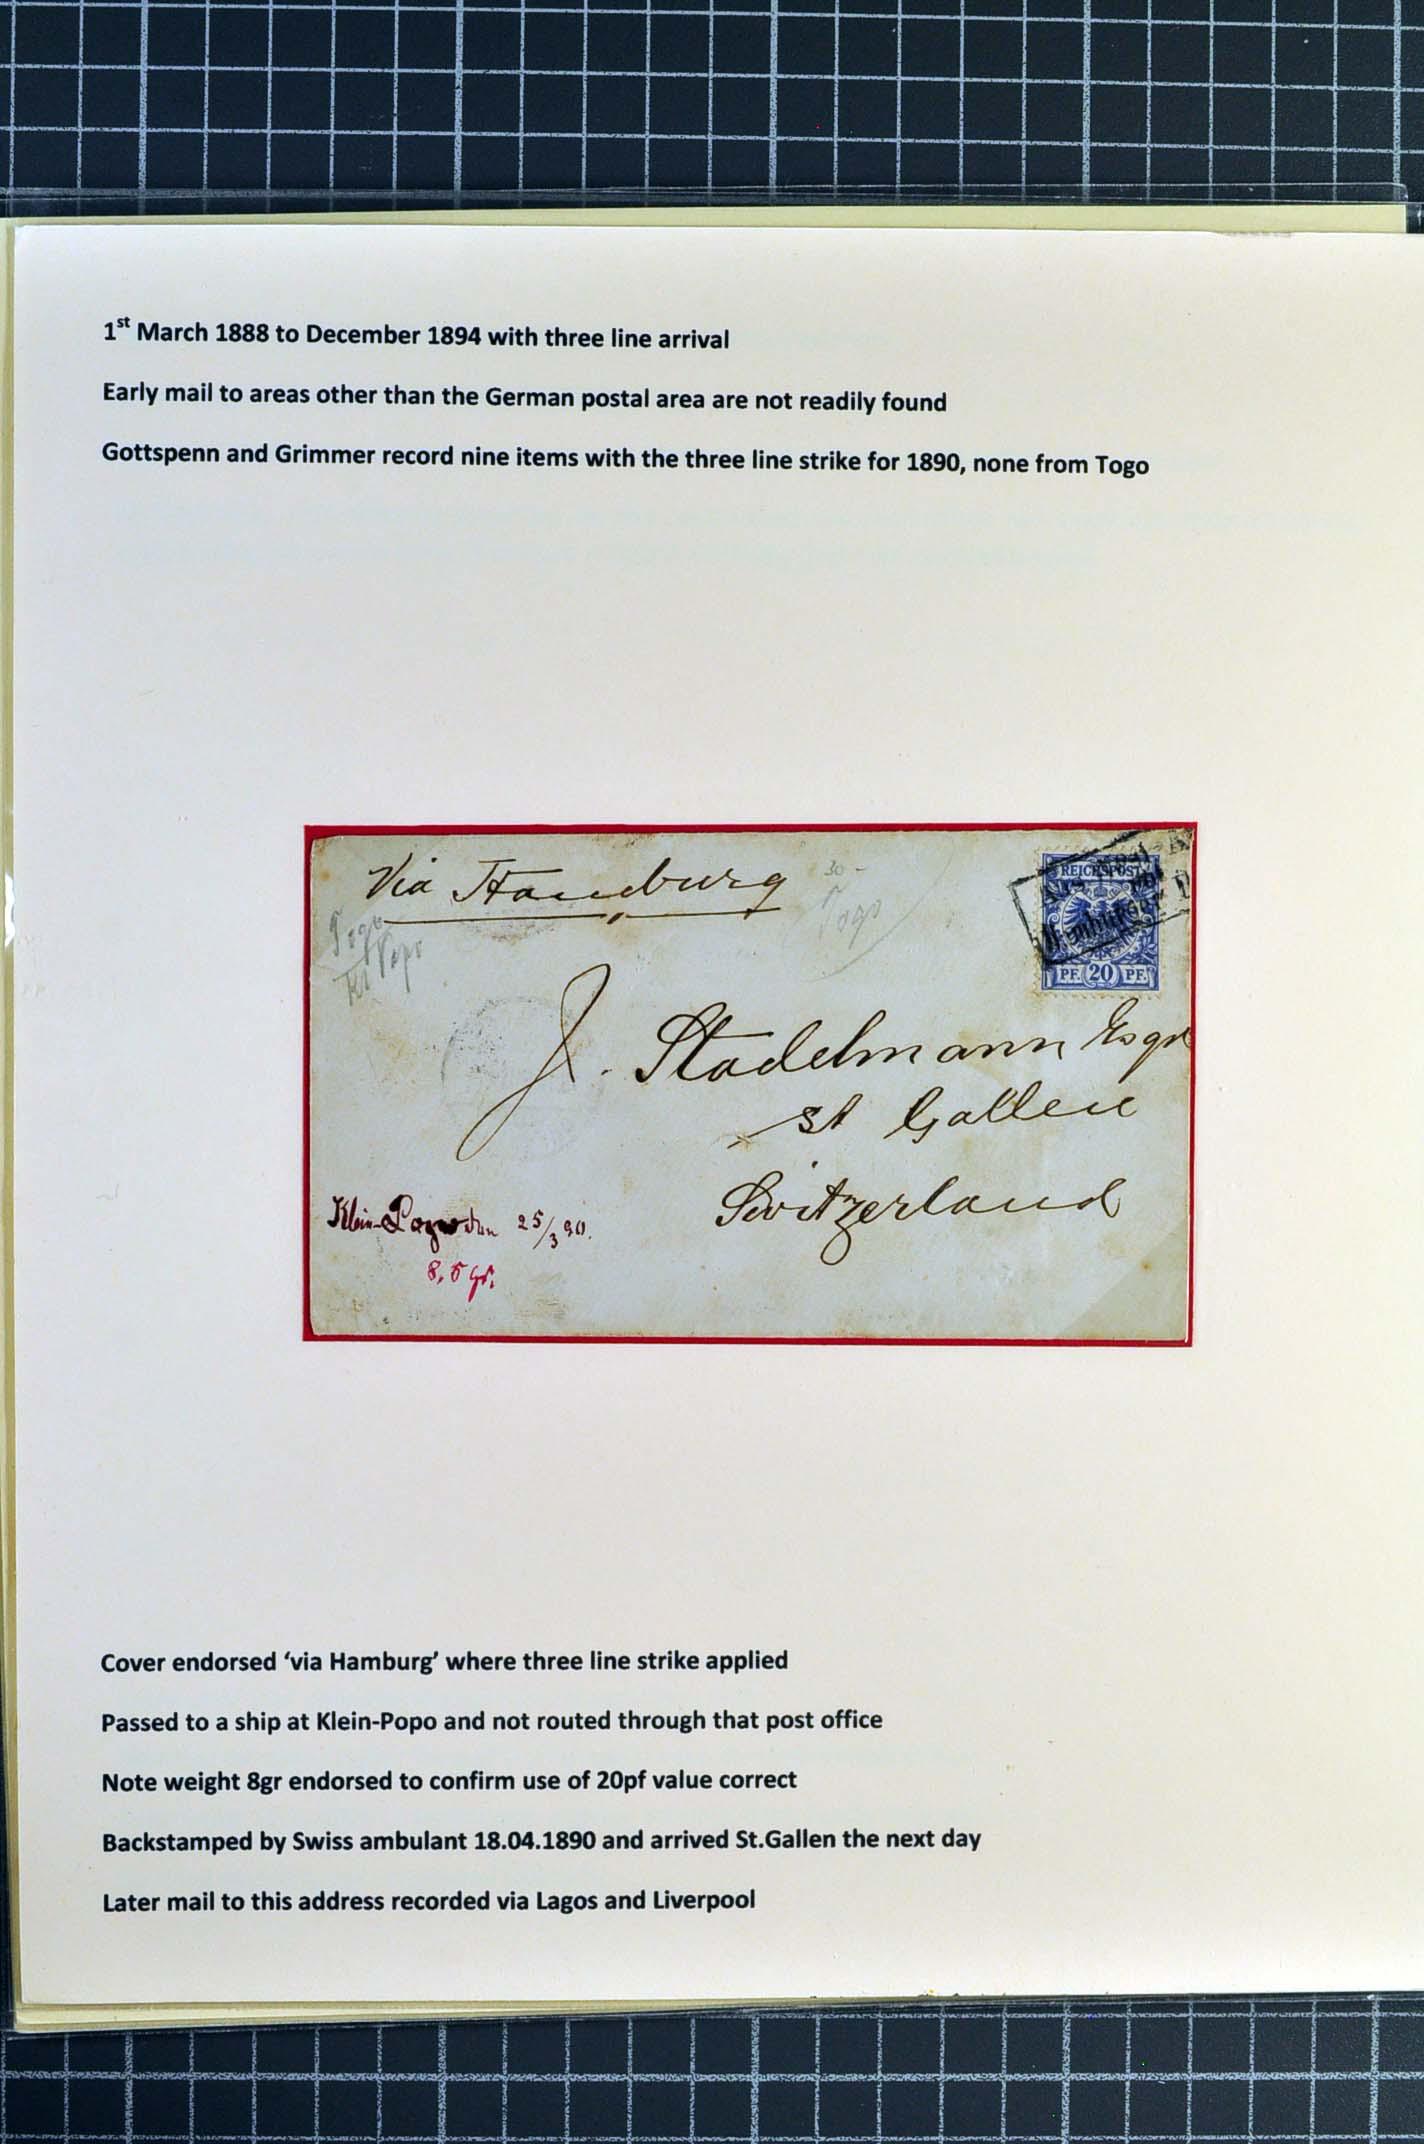 1st March 1888 to December 1894 with three line arrival
Early mail to areas other than the German postal area are not readily found
Gottspenn and Grimmer record nine items with the three line strike for 1890, none from Togo
Via Hamburg
30-
Togo
Togo
Kl Popo
REICHSPOST
PF. 20 PF.
J. Stadelmann Esqr
St Gallen
Switzerland
Klein-Popo den 25/3 90.
8,5 gr.
Cover endorsed ‘via Hamburg’ where three line strike applied
Passed to a ship at Klein-Popo and not routed through that post office
Note weight 8gr endorsed to confirm use of 20pf value correct
Backstamped by Swiss ambulant 18.04.1890 and arrived St.Gallen the next day
Later mail to this address recorded via Lagos and Liverpool